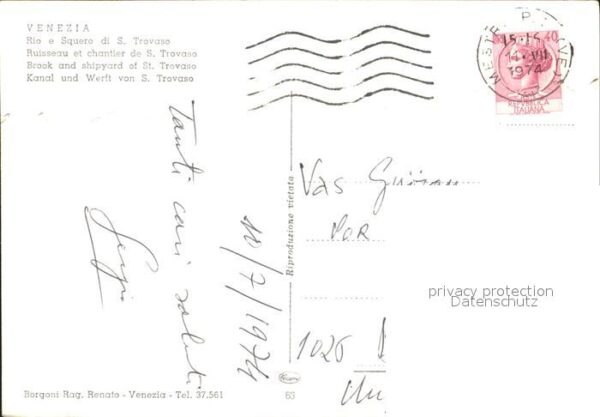 VENEZIA
Rio e Squero di S. Trovaso
Ruisseau et chantier de S. Trovaso
Brook and shipyard of St. Trovaso
Kanal und Werft von S. Trovaso
Tanti cari saluti
10/7/1974
Riproduzione vietata
MESTRE P. VE
15-15
11 VII
1974
40
REPUBBLICA
ITALIANA
Vas
1026
privacy protection
Datenschutz
Borgoni Rag. Renato - Venezia - Tel. 37.561
63